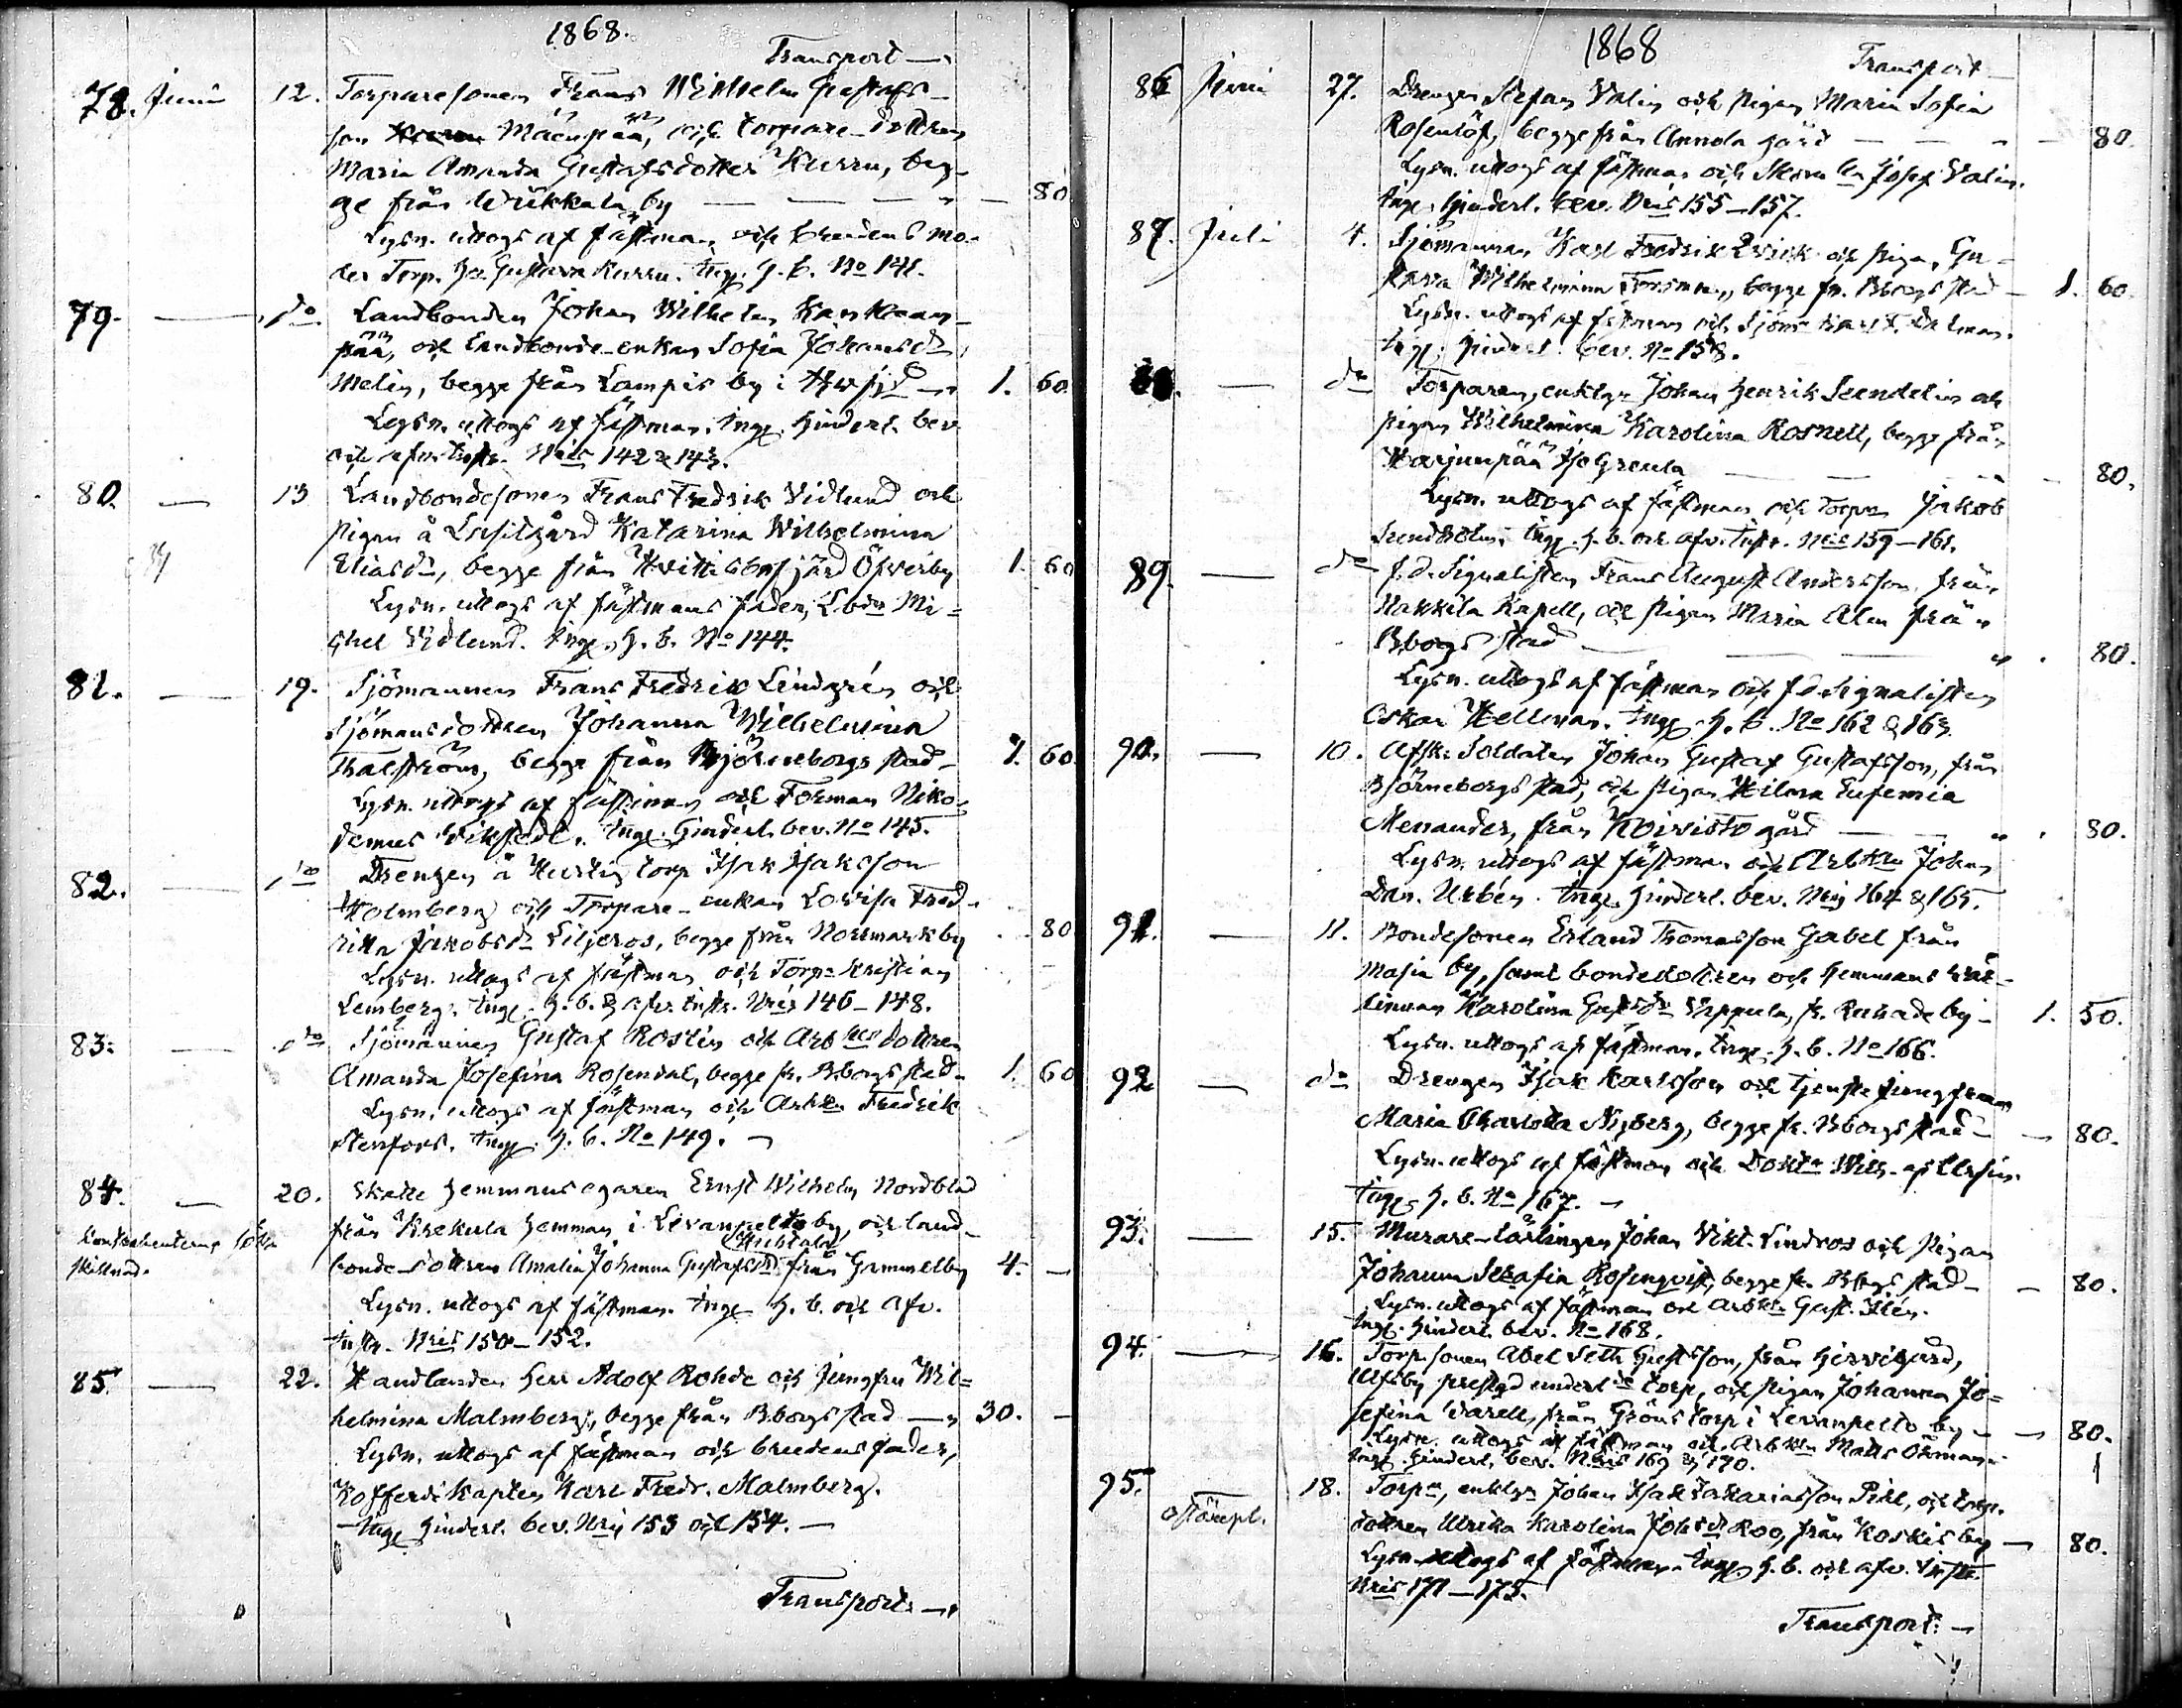 1868.
Transport —
78. Juni 12. Torparesonen Frans Wilhelm Gustafs-
son Mäenpää, och torpare-dottren
Maria Amanda Gustafsdotter Kurru, beg-
ge från by — — — " — 80
Lysn. uttogs af fästman och brudens mo-
der Torp. Gustava Kurru. Inge. H. b. No 141.
79. — do Landbonden Johan Wilhelm Kankaan-
pää, och Landbonde-enkan Sofia Johansdr
Melin, begge från Lampis by i — 1. 60.
Lysn. uttogs af fästman. Inge. Hinderl. bev
och Nris 142 & 143.
80. — 13 Landbondesonen Frans Fredrik Vidlund och
pigan å gård Katarina Wilhelmina
Eliasdr, begge från Hvittisbofjärd Öfverby 1. 60
Lysn. uttogs af fästmans fader, Lbdn Mi=
chel Vidlund. Inge. H. b. No 144.
81. — 19. Sjömannen Frans Fredrik Lindgrén och
Sjömansdottren Johanna Wilhelmina
Thalström, begge från Björneborgs stad - 1. 60
Lysn. uttogs af fästman och Forman Niko-
demus Wikstedt. Inge. Hinderl. bev. No 145.
82. — do Drengen å torp Isak Isaksson
Holmberg och Torpare-enkan Lovisa Fred-
rika Jakobsdr Liljeros, begge från Norrmark by - 80
Lysn. uttogs af fästman och Torpn Kristian
Lemberg. Inge. H. b. & afv. Nris 146-148.
83. — do Sjömannen Gustaf Roslin och Arbkls dottren
Amanda Josefina Rosendal, begge fr. Bborgs stad - 1. 60
Lysn. uttogs af fästman och Arbkln Fredrik
Stenfors. Inge. H. b. No 149. —
84. — 20. Skatte hemmansegaren Ernst Wilhelm Nordblad
från Krekula hemman i Levanpelto by, och land-
Kontrahenterne
skillnad. Huhtala
bonde-dottren Amalia Johanna Gustafsdr från Gammelby 4. —
Lysn. uttogs af fästman. Inge H. b. och afv.
Nris 150-152.
85. — 22. Handlanden Herr Adolf Rohde och Jungfru Wil=
helmina Malmberg, begge från Bborgs stad — " 30. —
Lysn. uttogs af fästman och brudens fader,
Kofferdi Kapten Karl Fredr. Malmberg.
Inge Hinderl. bev. Nris 153 och 154. —
Transport. —
1868
Transport —
86 Juni 27. Drengen Stefan Valin och pigan Maria Sofia
Rosenlöf, begge från Annola gård — — " — 80.
Lysn. uttogs af fästman och Josef Valin.
Inge. Hinderl. bev. Nris 155-157.
87. Juli 4. Sjömannen Karl Fredrik Qvick och pigan Gu-
stava Wilhelmina Forsman, begge fr. Bborgs stad — 1. 60.
Lysn. uttogs af fästman och Sjömn Karl F. Dalman.
Inge. Hinderl. bev. No 158.
88. — do Torparen, enklgn Johan Henrik Sundelin och
pigan Wilhelmina Karolina Rosnell, begge från
Harjunpää — " — 80.
Lysn. uttogs af fästman och Torpn Jakob
Sundholm. Inge. H. b. och afv. Nris 159-161.
89. — do f.d. Signalisten Frans August Andersson från
Nakkila Kapell, och pigan Maria Alén från
Bborgs stad — — " . 80.
Lysn. uttogs af fästman och f.d. Signalisten
Oskar Hellman. Inge. H. b. No 162 & 163.
90. — 10. Afsk. Soldaten Johan Gustaf Gustafsson, från
Björneborgs stad, och pigan Hilma Eufemia
Menander, från Koivisto gård — — " . 80.
Lysn. uttogs af fästman och Arbkln Johan
Dan. Urbén. Inge. Hinderl. bev. Nris 164 & 165.
91. — 11. Bondesonen Erland Thomasson Gabel från
Masia by, samt bondedottren och hemmans
Karolina Gustsdr Seppula, fr. by - 1. 50.
Lysn. uttogs af fästman. Inge. H. b. No 166.
92 — do Drengen Isak Karlsson och tjenstejungfrun
Maria Charlotta Nyberg, begge fr. Bborgs stad — — 80.
Lysn. uttogs af fästman och Wilh. af
Inge. H. b. No 167. —
93. — 15. Murare-lärlingen Johan Vikt. Lindros och pigan
Johanna Serafia Rosenqvist, begge fr. Bborgs stad — — 80.
Lysn. uttogs af fästman och Arbkln Gust.
Inge. Hinderl. bev. No 168.
94. — 16. Torpsonen Abel Seth Gustsson, från Hirvigård,
Ulfsby prestgd underl. torp, och pigan Johanna Jo=
sefina Varell, från Gröns torp i Levanpelto by — — 80.
Lysn. uttogs af fästman och Arbkln Matts Öhman.
Inge. Hinderl. bev. Nris 169 & 170.
95. 18. Torpn, enklgn Johan Isak Zakariasson Pihl, och torp-
dottren Ulrika Karolina Johsdr Roo, från Koskis by — 80.
Lysn. uttogs af fästman. Inge. H. b. och afv.
Nris 171-173.
Transport. —